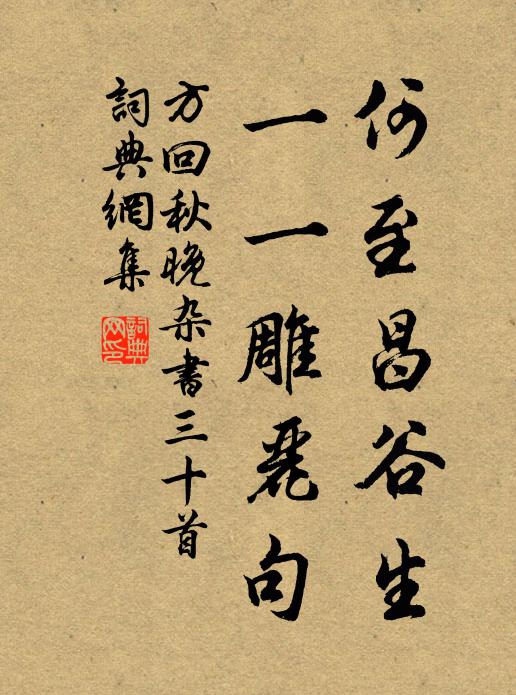 何至昌谷生
一一雕麗句
方回秋晚杂書三十首
詞典網集
詞典網印